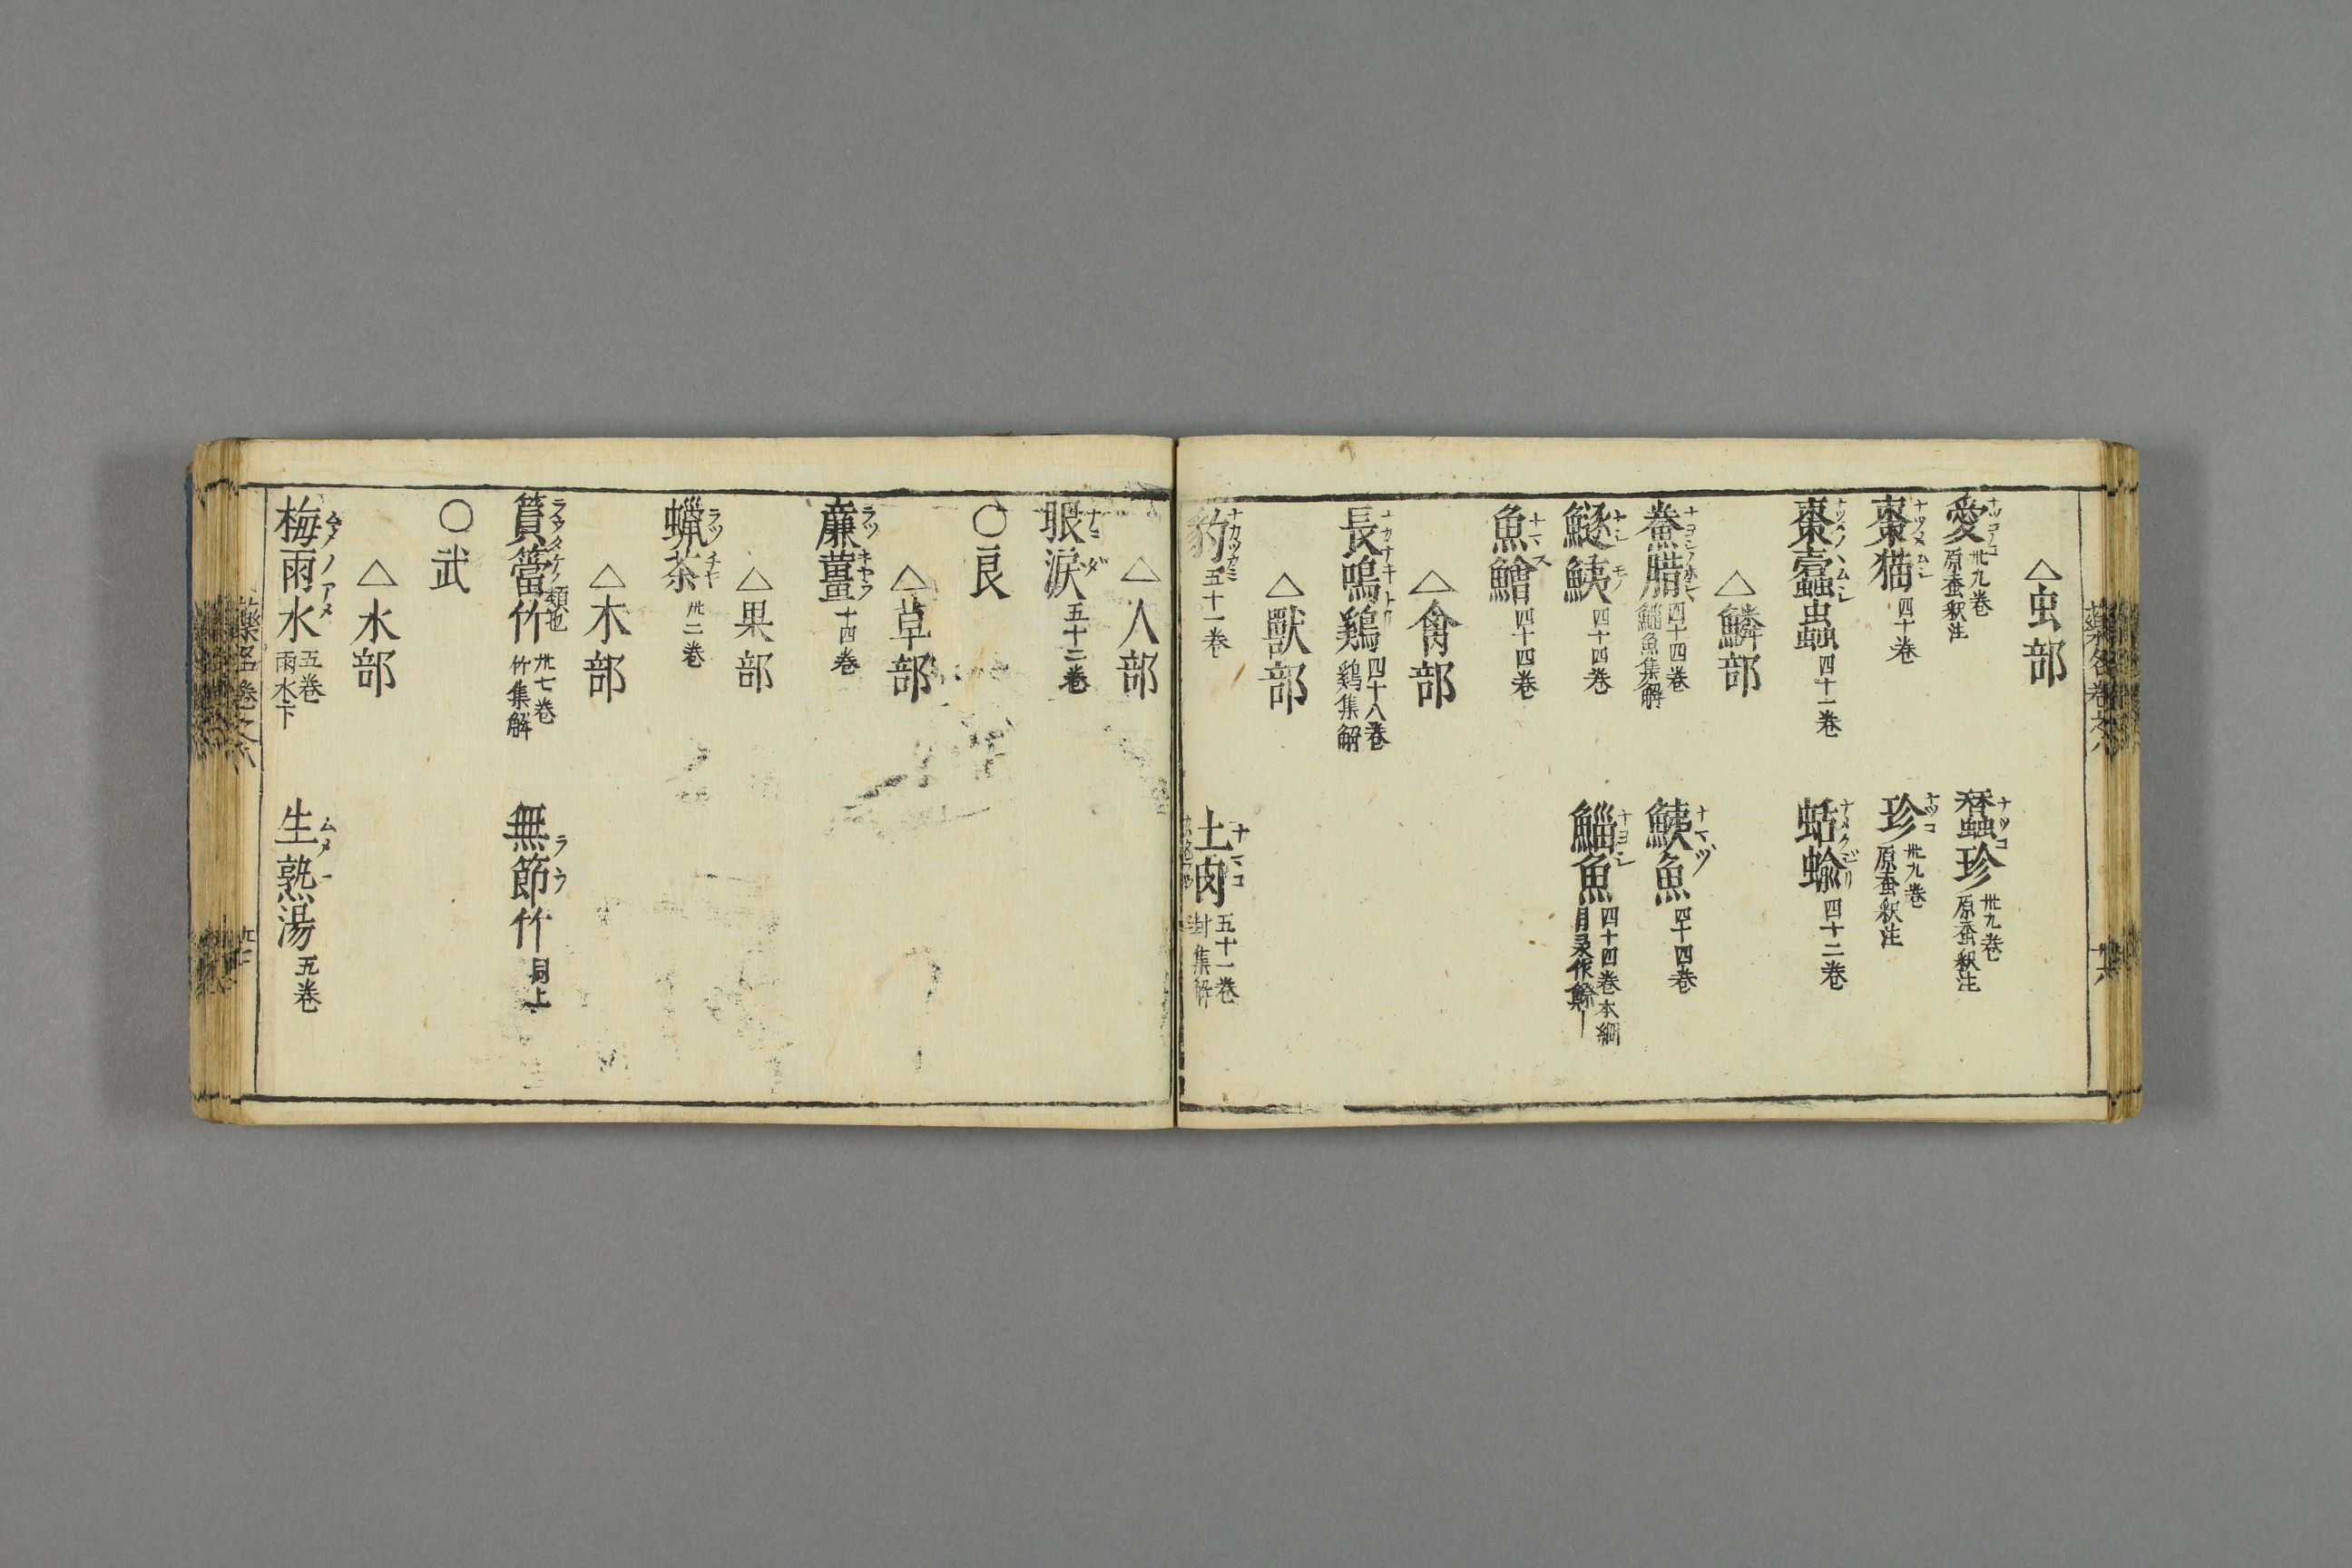 △虫部
愛 ナツコノコ 卅九巻 原蚕釈注
蠶珍 ナツコ 卅九巻 原蚕釈注
棗猫 ナツメムシ 四十巻
珍 ナツコ 卅九巻 原蚕釈注
棗蠹蟲 ナツメノムシ 四十一巻
蛞蝓 ナメクジリ 四十二巻
△鱗部
鮝腊 四十四巻 鯔魚集解
鮧魚 ナマヅ 四十四巻
鱁鮧 ナシモノ 四十四巻
鯔魚 ナヨシ 四十四巻 本綱目录作
魚鱠 ナマス 四十四巻
△禽部
長鳴鷄 ナカナキトリ 四十八巻 鷄集解
△獸部
豹 ナカツカミ 五十一巻
土肉 ナマコ 五十一巻 封集解
△人部
眼涙 ナミダ 五十二巻
〇良
△草部
廉薑 ラツキヤウ 十四巻
△果部
蝋茶 ラツチヤ 卅二巻
△木部
篔簹竹 類也 卅七巻 竹集解
無節竹 ラウ 同上
〇武
△水部
梅雨水 ムメノアメ 五巻 雨水下
生熟湯 五巻